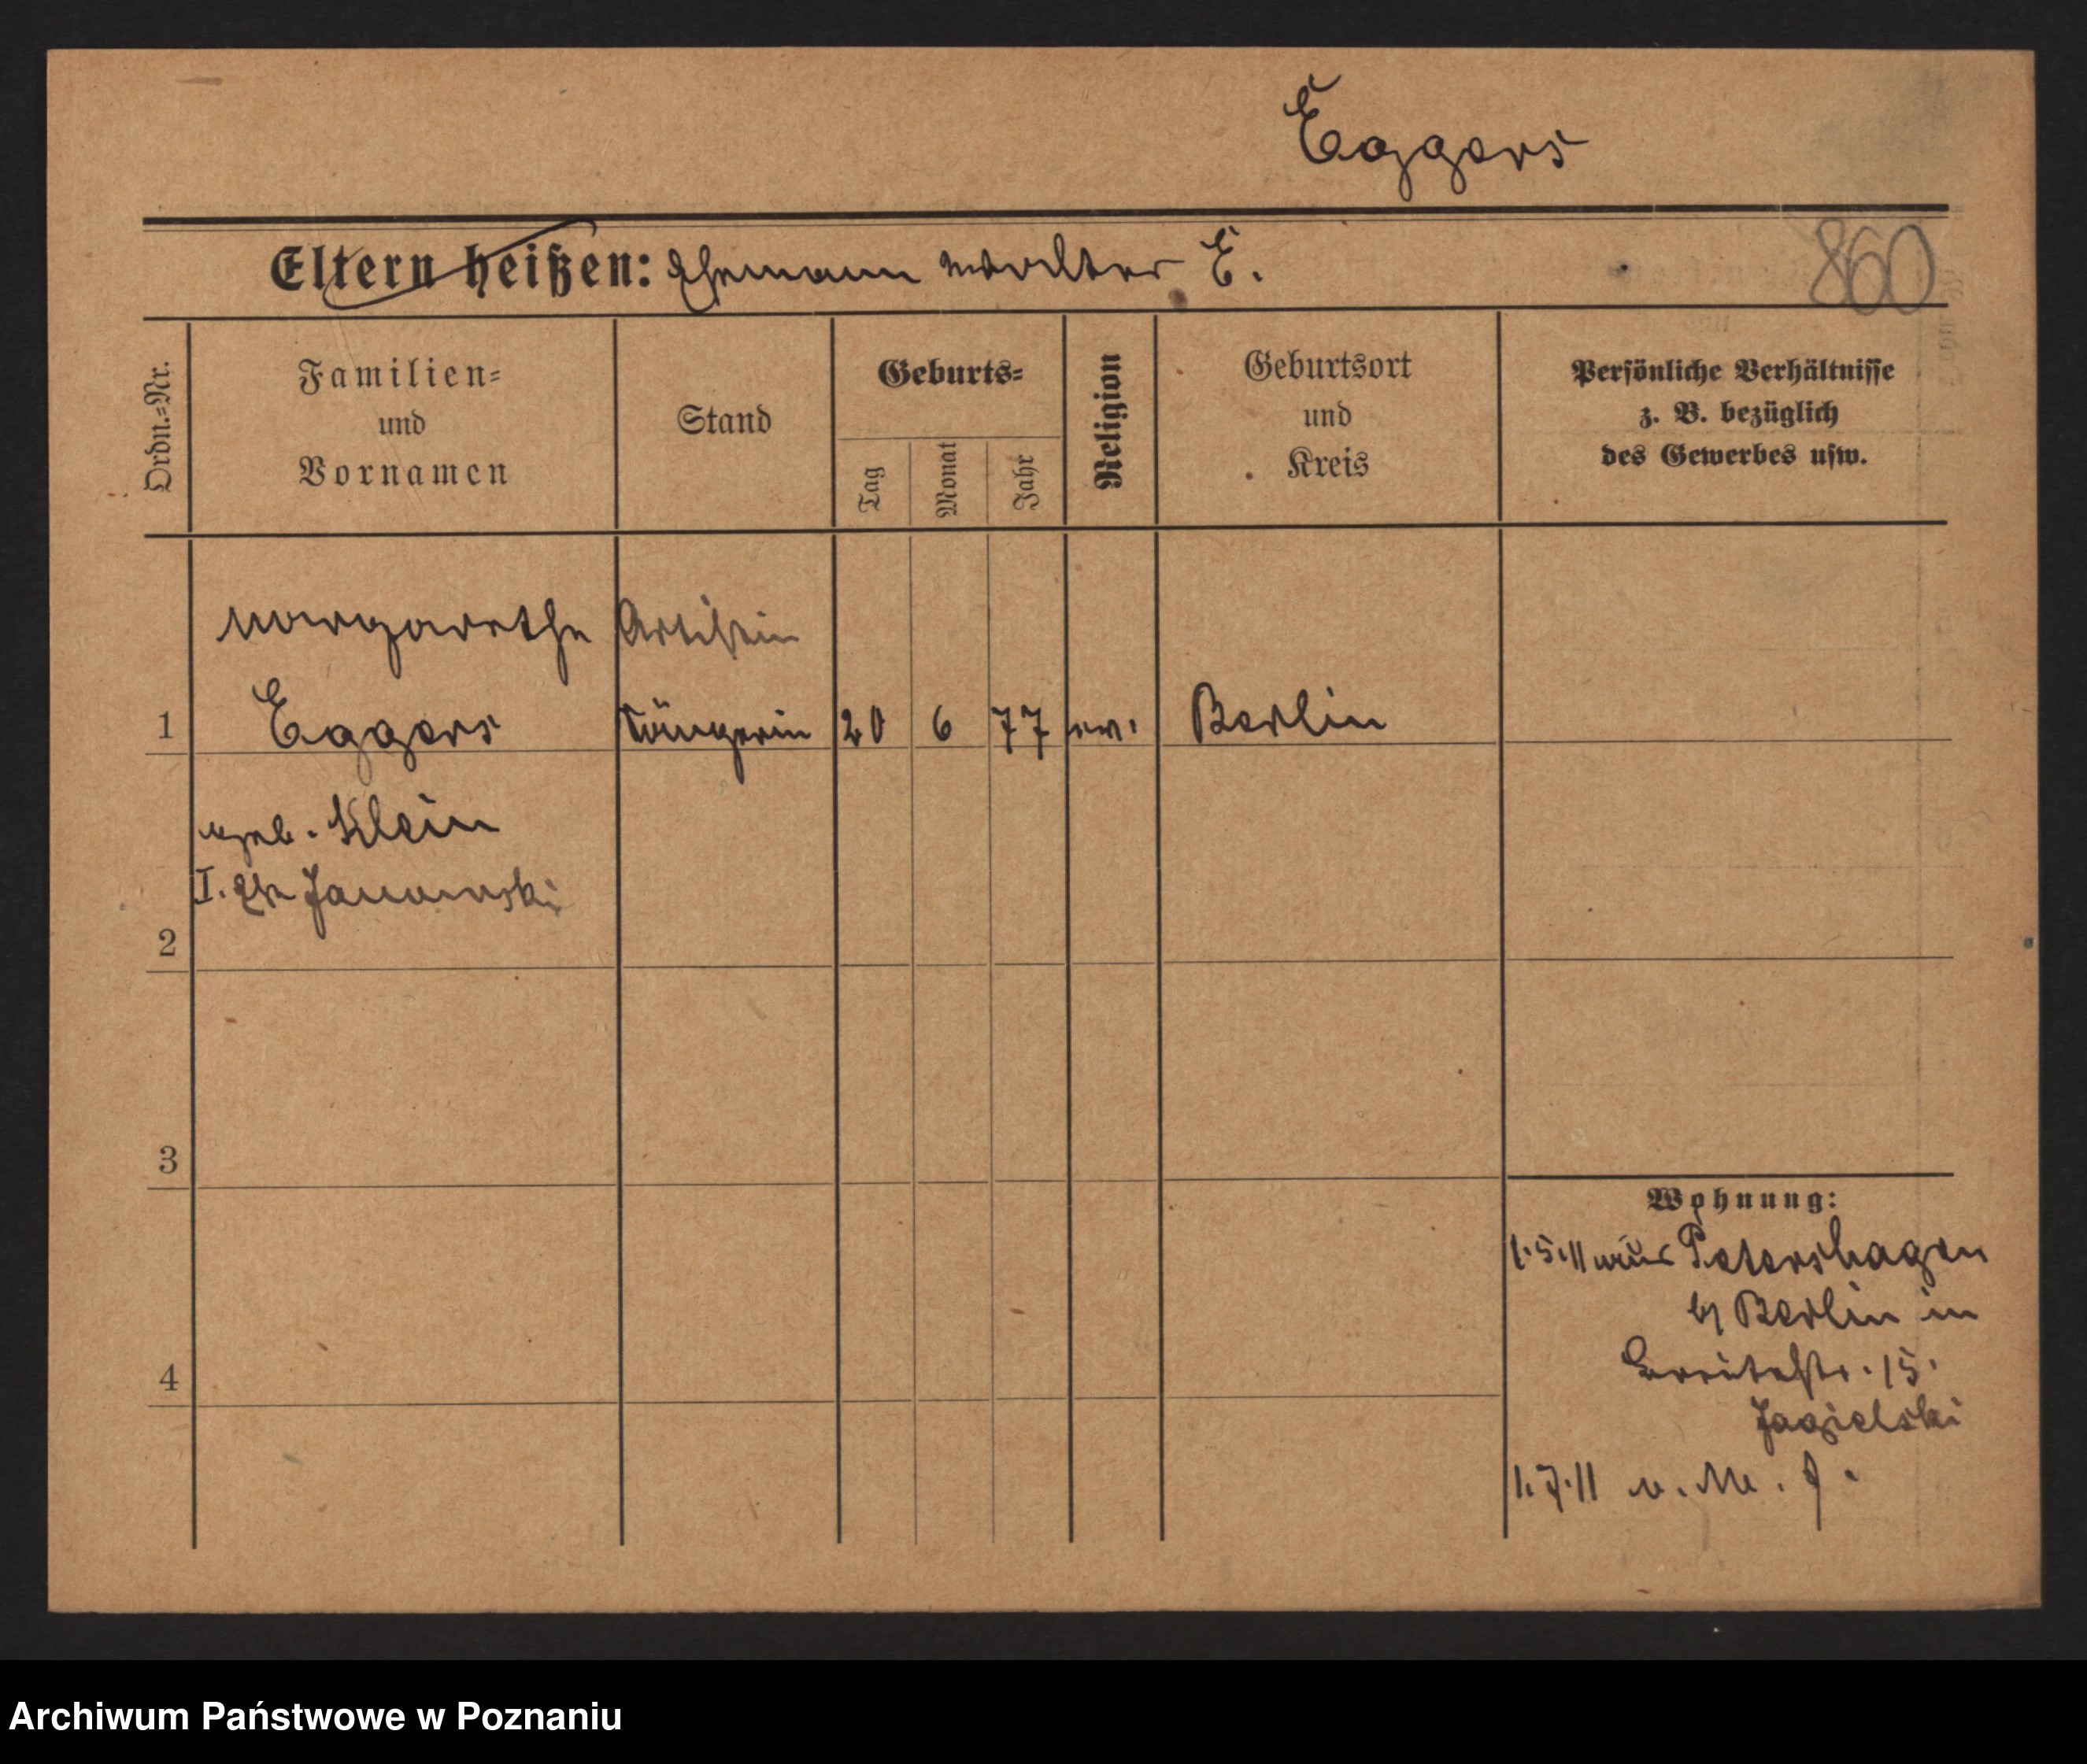 Eggers
Eltern heißen: Ehemann Walter E.
860
Ordn.=Nr.
Familien=
und
Vornamen
Stand
Geburts=
Tag
Monat
Jahr
Religion
Geburtsort
und
Kreis
Persönliche Verhältnisse
z. B. bezüglich
des Gewerbes usw.
Margarethe Artistin
1 Eggers Sängerin 20 6 77 ev. Berlin
geb. Klein
I. Ehe Janowski
2
3
Wohnung:
1.5.11 aus Petershagen
b/ Berlin in
Breitestr. 15.
4
Jagielski
1.7.11 v. M. J.
Archiwum Państwowe w Poznaniu